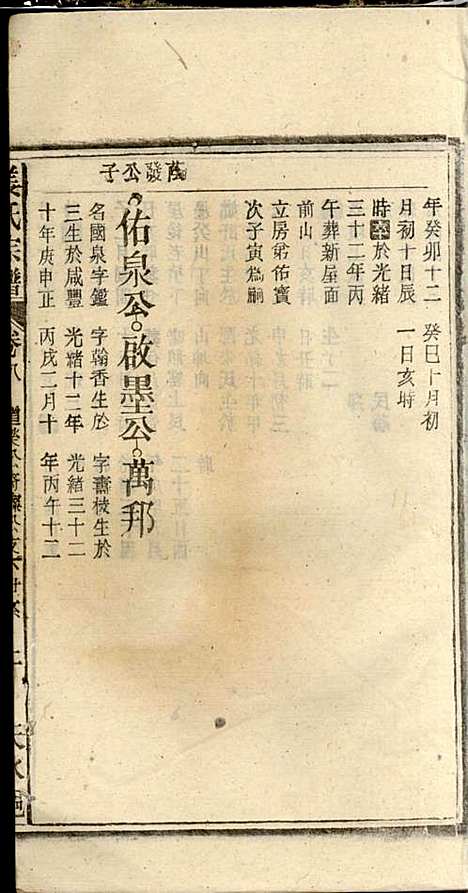 年癸卯十二 癸巳十月初
月初十日辰 一日亥時
時卒於光緒
三十二年丙
午葬新屋面
前山
立房弟佑寶
次子寅為嗣
發公子
佑泉公 啟墨公 萬邦
名國泉字鑑 字翰香生於 字壽棱生於
三生於咸豐 光緒十二年 光緒三十二
十年庚申正 丙戌二月十 年丙午十二
氏宗譜 卷八 天水